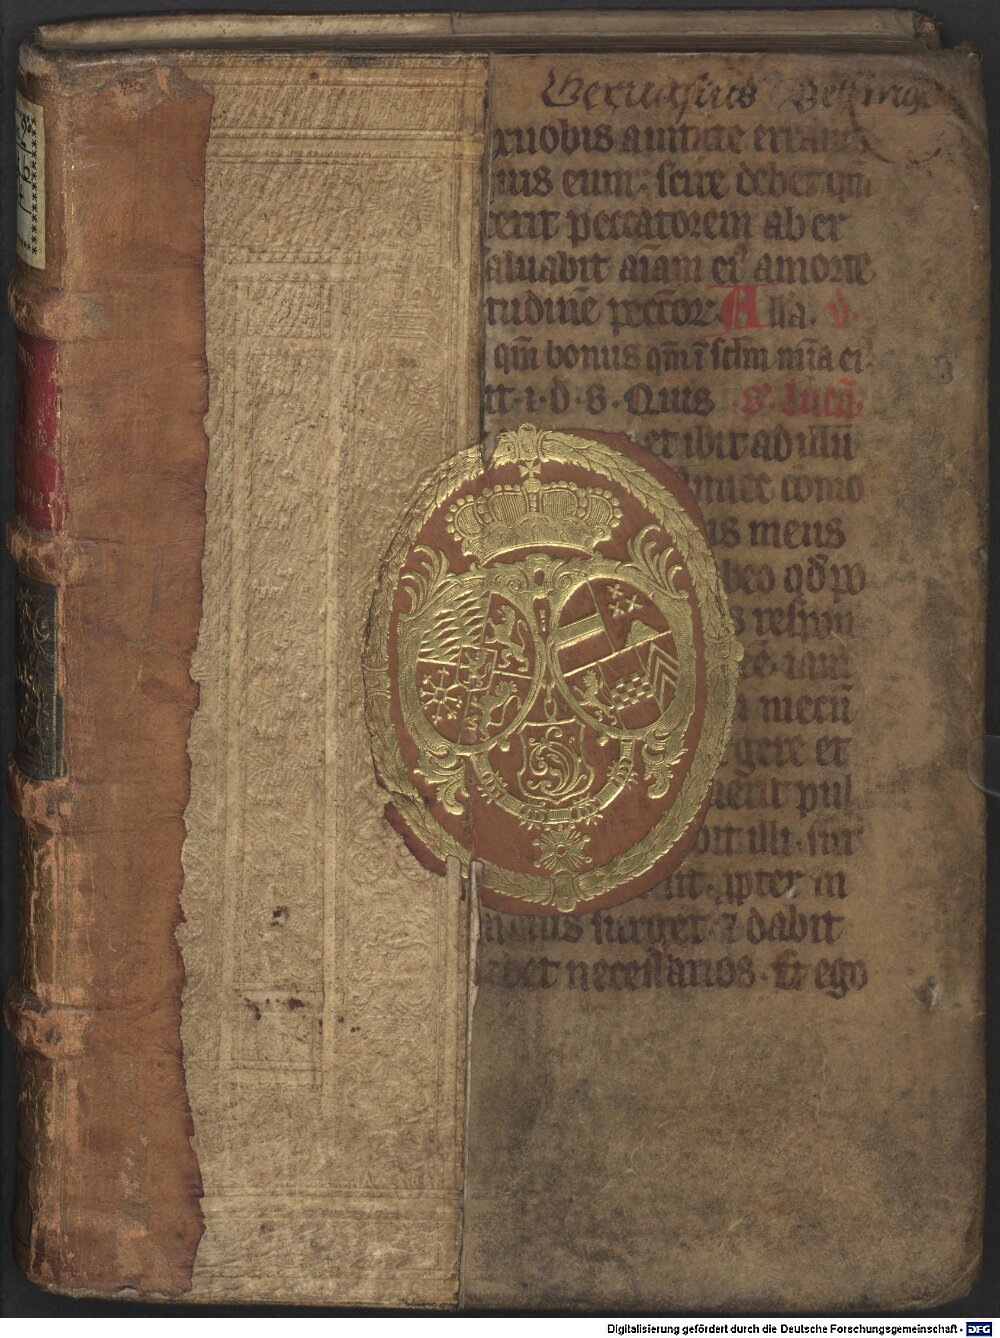 ruobis autite errau
ius eum. scire debet qm̄
erit peccatorem ab er
aluabit aīam eiꝰ a morte
tudinē peccōꝝ. Alla. v.
qm̄ bonus qm̄ ī sclm̄ mīa eiꝰ
tt. i. d. s. Quis s. lucā
et ibit ad illū
amice cōmo
is meus
beo qd̄ po
s respon
iam
mecū
gere et
uēit pul
bit illi. sur
it. ꝓpter im
surget ⁊ dabit
abet necessarios. Et ego
Digitalisierung gefördert durch die Deutsche Forschungsgemeinschaft - DFG